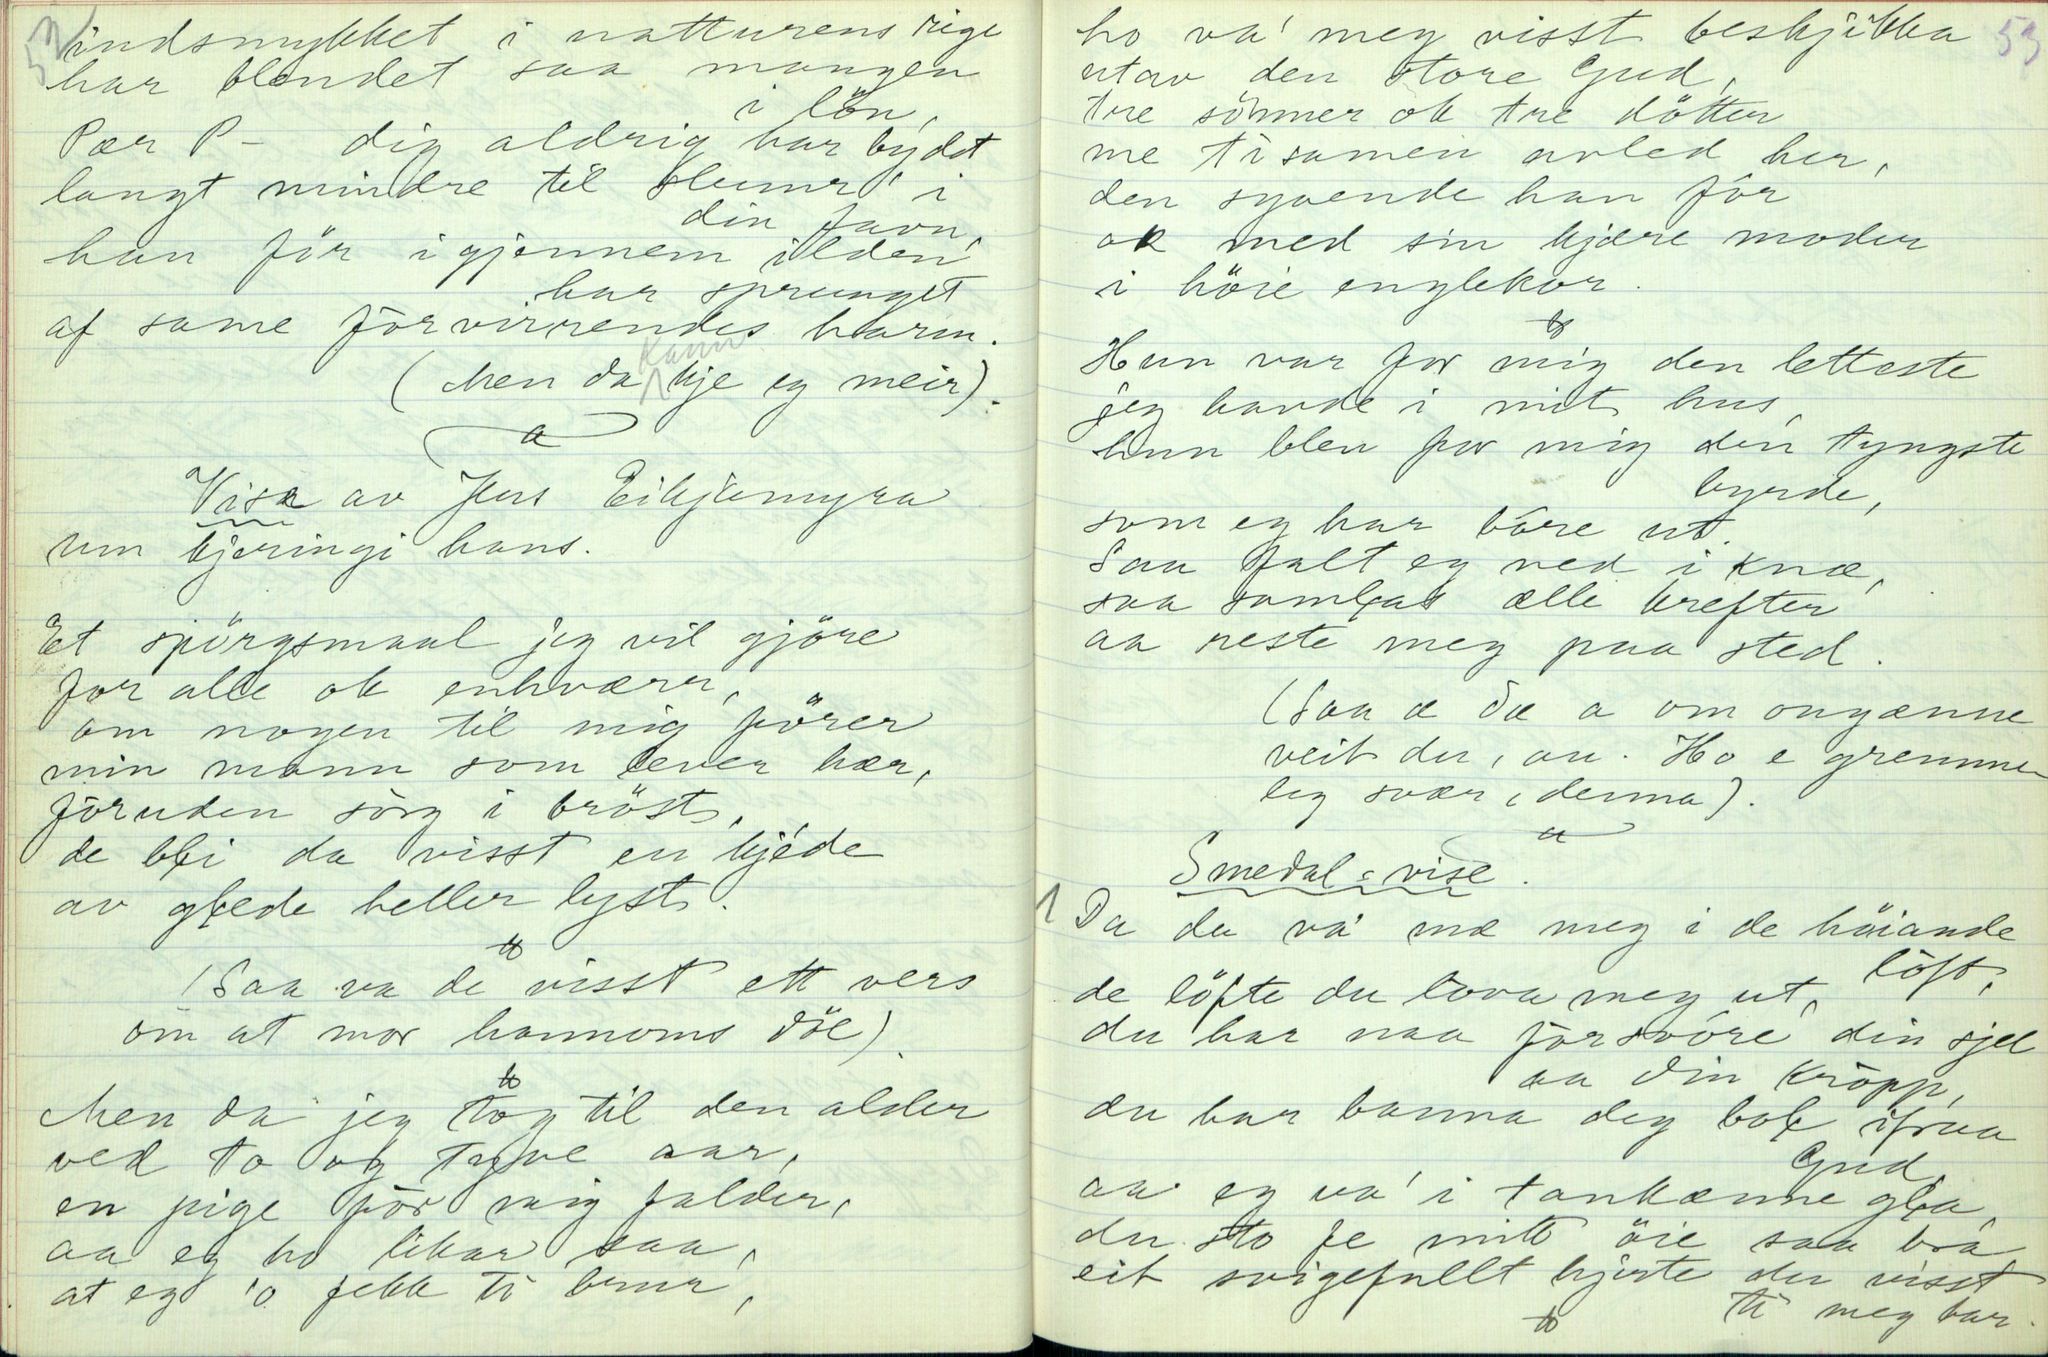 52
indsmykket i natturens rige
har blendet saa mangen
i lön,
Pær P- dig aldrig har bydet
langt mindre til slumr' i
din favn,
han för igjennem ilden
har sprunget
af same förvirrendes harm.
(Men da kann kje eg meir).
Visa av Jens Eikjemyra
um kjeringi hans.
Et spörgsmaal jeg vil gjöre
for alle ok enhværr,
om nogen til mig förer
min mann som lever hær,
föruden sörg i bröst,
de bļi da visst en kjéde
av gļede heller lyst.
(Saa va de visst ett vers
om at mor hannoms död)
Men da jeg tog til den alder
ved to og tyve aar,
en pige för mig falder,
aa eg ho likar saa,
at eg 'o fekk ti brur,
53
ho va' meg visst beskjikka
utav den store Gud,
tre sönner ok tre dötter
me ti samen avled her,
den syvende han för
ok med sin kjære moder
i höie englekor.
Hun var for mig den letteste
jeg havde i mit hus,
hun blev for mig den tyngste
byrde,
som eg har bore ut.
Saa falt eg ned i knæ,
saa samļas ælle krefter
aa reste meg paa sted.
(Saa æ dæ a om ongænne
veit du, au. Ho e gremme-
leg svær, denna).
Smedal-vise.
1 Da du va' mæ meg i de höiande
löft,
de löfte du lova meg ut,
du har naa försvöre din sjel
aa din kröpp,
du har banna deg boļ ifraa
Gud,
aa eg va' i tankænne gļa,
du sto fe mitt öie saa bra
eit svigefullt hjerte du visst
ti meg bar.